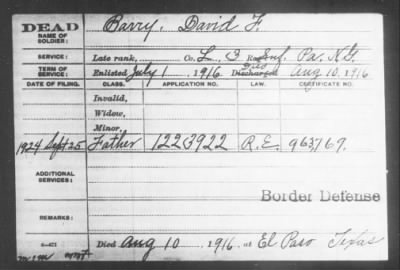 DEAD
NAME OF SOLDIER:
Barry, David F.
SERVICE:
Late rank, Co. L, 3 Reg Inf. Pa. N.G.
TERM OF SERVICE:
Enlisted July 1, 1916 Discharged Died Aug 10, 1916
DATE OF FILING. CLASS. APPLICATION NO. LAW. CERTIFICATE NO.
Invalid,
Widow,
Minor,
1924 Sept 25 Father 1223922 R.E. 963,769.
ADDITIONAL SERVICES:
Border Defense
REMARKS:
Died Aug 10, 1916, at El Paso Texas